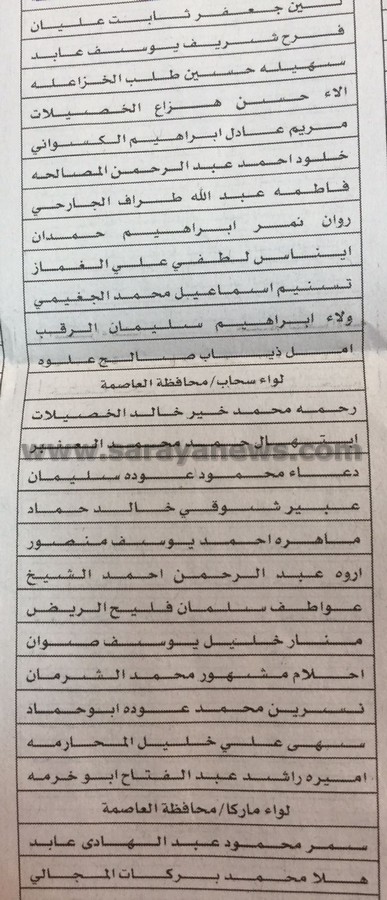 لين جعفر ثابت عليان
فرح شريف يوسف عابد
سهيله حسين طلب الخزاعله
الاء حسن هزاع الخصيلات
مريم عادل ابراهيم الكسواني
خلود احمد عبد الرحمن المصالحه
فاطمه عبد الله طراف الجارحي
روان نمر ابراهيم حمدان
ايناس لطفي علي الغماز
تسنيم اسماعيل محمد الجغيمي
ولاء ابراهيم سليمان الرقب
امل ذياب صالح علوه
لواء سحاب/محافظة العاصمة
رحمه محمد خير خالد الخصيلات
ابتهال حمد محمد
www.sarayanews.com
دعاء محمود عوده سليمان
عبير شوقي خالد حماد
ماهره احمد يوسف منصور
اروه عبد الرحمن احمد الشيخ
عواطف سلمان فليح الريض
منار خليل يوسف صوان
احلام مشهور محمد الشرمان
نسرين محمد عوده ابوحماد
سهى علي خليل المحارمه
اميره راشد عبد الفتاح ابو خرمه
لواء ماركا/محافظة العاصمة
سمر محمود عبد الهادى عابد
هلا محمد بركات المجالي